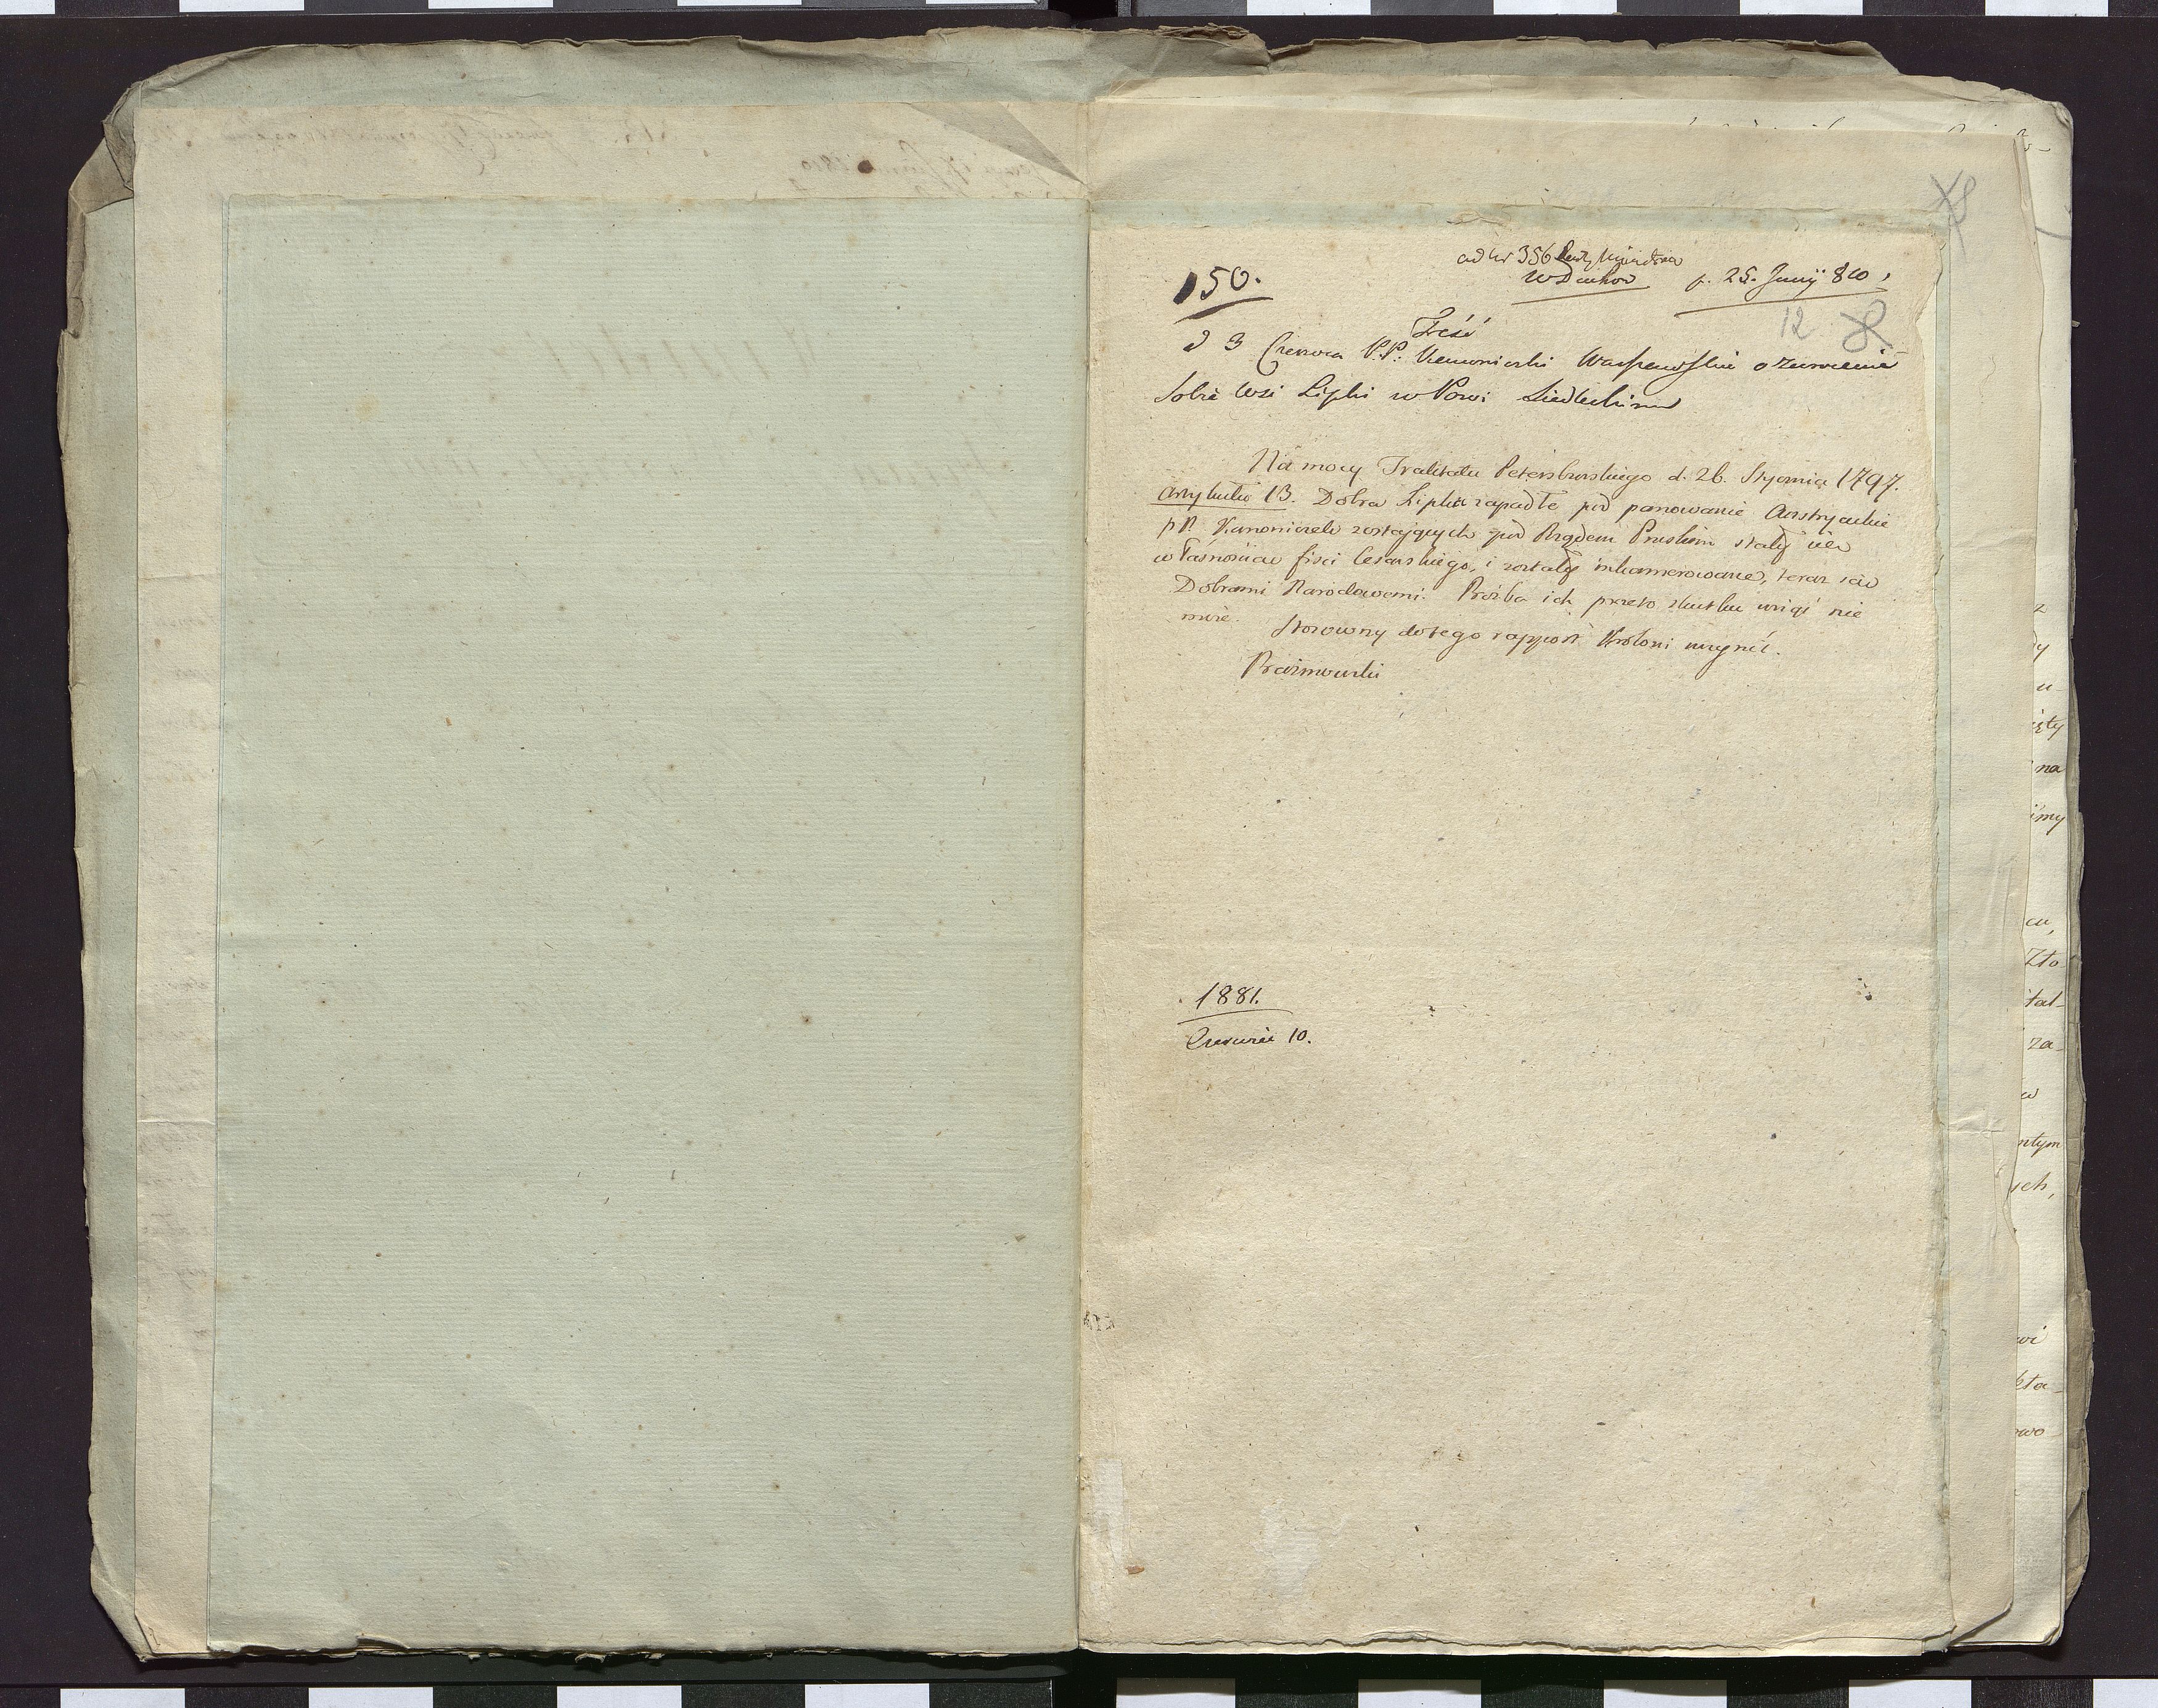 150.
ad Nr 356
p. 25. Junij 810
12
Treść
d 3 Czerwca P.P: Kanoniczki Warszawskie o zwrocenie
Sobie Wsi Lipki w Powi: Siedleckim
Na mocy Traktatu Petersburskiego d. 26. Stycznia 1797.
Artykułu 13. Dobra Lipki zapadłe pod panowanie Austryackie
pp Kanoniczek zostających pod Rządem Pruskim stały się
własnością fisci Cesarskiego, i zostały inkamerowane, teraz są
Dobrami Narodowemi. Prośba ich przeto skutku wziąść nie
może.
Stosowny do tego rapport Krolowi uczynić.
Prażmowski
1881.
Czerwca 10.